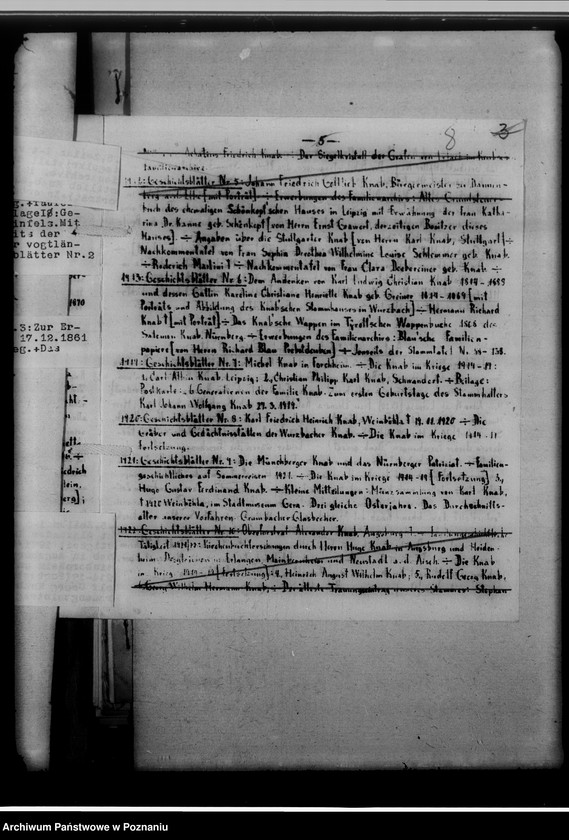 g. + Haupt
lageIØ:Ge-
infels.Mit
its der 4
r vogtlän-
blätter Nr.2
1670
.S:Zur Er-
17.12.1861
eg.+Die
-5-
8
3
Friedrich Knab. Der Siegelkristall der Grafen von
Familienarchiv.
Geschichtsblätter Nr. 5: Johann Friedrich Gottlieb Knab, Bürgermeister zu
[mit Porträt] ÷ Erwerbungen des Familienarchivs: Altes
buch des ehemaligen Schönkopf'schen Hauses in Leipzig mit Erwähnung der Frau Katha-
rina Dr. Kanne geb. Schönkopf [von Herrn Ernst Grawert, derzeitigen Besitzer dieses
Hauses] ÷ Angaben über die Stuttgarter Knab [von Herrn Karl Knab, Stuttgart] ÷
Nachkommentafel von Frau Sophia Dorothea Wilhelmine Louise Schlemmer geb. Knab.
÷ Roderich Martini † ÷ Nachkommentafel von Frau Clara geb. Knab. ÷
1913: Geschichtsblätter Nr. 6: Dem Andenken von Karl Ludwig Christian Knab
und dessen Gattin Karoline Christiane Henriette Knab geb. Greiner [mit
Porträts und Abbildung des Knab'schen Stammhauses in Wurzbach] ÷ Hermann Richard
Knab † [mit Porträt] ÷ Das Knab'sche Wappen im Tyroff'schen Wappenbuche 1806 des
Knab, Nürnberg ÷ Erwerbungen des Familienarchivs: Blau'sche Familien-
papiere [von Herrn Richard Blau ÷ Jenseits der Stammtafel N.
1919: Geschichtsblätter Nr. 7: Michel Knab in Forchheim. ÷ Die Knab im Kriege 1914-19:
1, Carl Albin Knab, Leipzig; 2, Christian Philipp Karl Knab, Schwandorf. ÷ Beilage:
Postkarte: 6 Generationen der Familie Knab. Zum ersten Geburtstage des Stammhalters
Karl Johann Wolfgang Knab 29.3.1919.
1920: Geschichtsblätter Nr. 8: Karl Friedrich Heinrich Knab, Weinböhla † 19.11.1920 ÷ Die
Gräber und Gedächtnisstätten der Wurzbacher Knab. ÷ Die Knab im Kriege 1914-19
Fortsetzung.
1921: Geschichtsblätter Nr. 9: Die Münchberger Knab und das Nürnberger Patriziat. ÷ Familien-
geschichtliches auf Sommerreisen 1921. ÷ Die Knab im Kriege 1914-19 [Fortsetzung] 3,
Hugo Gustav Ferdinand Knab. ÷ Kleine Mitteilungen: Münzsammlung von Karl Knab,
† 1920 Weinböhla, im Stadtmuseum Gera. Drei gleiche Osterjahre. Das Durchschnitts-
alter unserer Vorfahren. Grumbacher Glasbecher.
1922: Geschichtsblätter Nr. 10: Oberforstrat Alexander Knab, Augsburg
Tätigkeit Kirchenbuchforschungen durch Herrn Hugo Knab in Augsburg und Heiden-
heim. Desgleichen in Erlangen, und Neustadt a.d. Aisch. ÷ Die Knab
im Krieg 1914-19 [Fortsetzung]: 4, Heinrich August Wilhelm Knab; 5, Rudolf Georg Knab,
Georg Wilhelm Hermann Knab. ÷ Der älteste Stephan
Archiwum Państwowe w Poznaniu